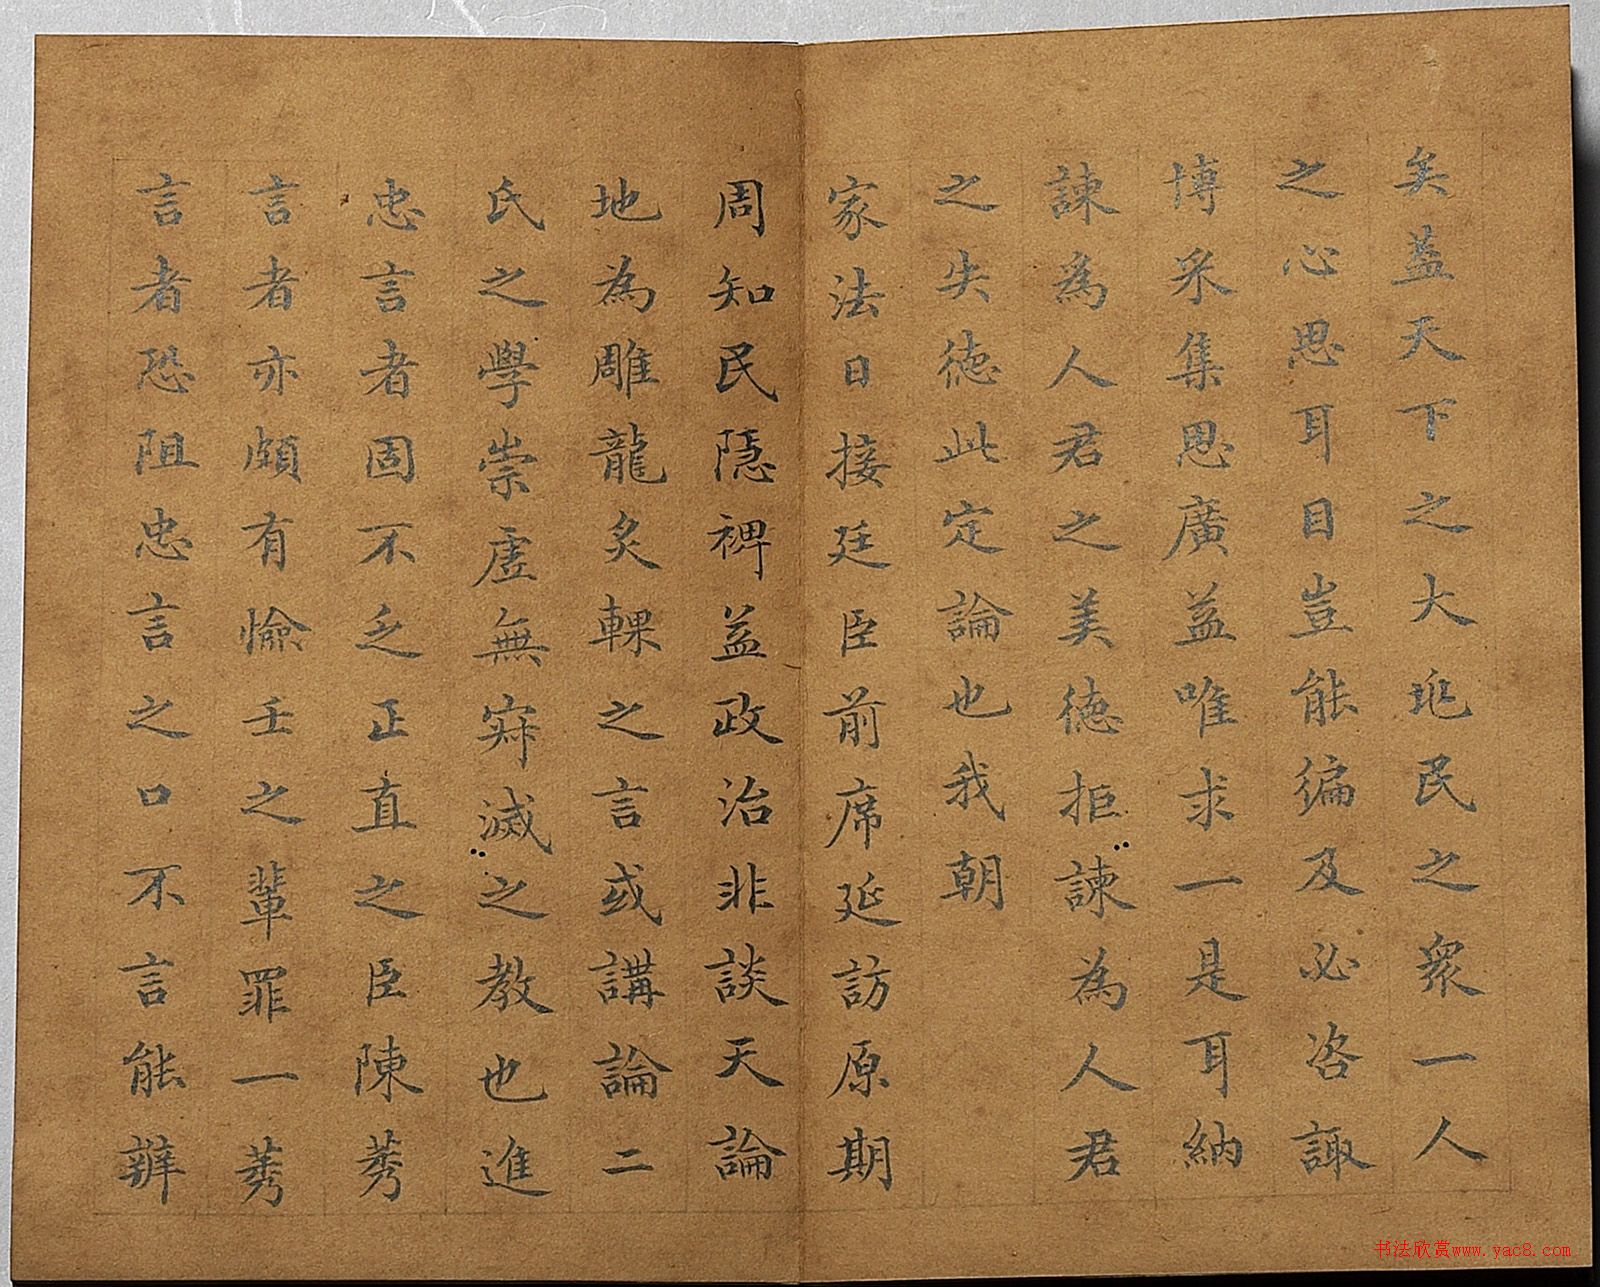 矣葢天下之大兆民之衆一人
之心思耳目豈能徧及必咨諏
博采集思廣益唯求一是耳納
諫為人君之美德拒諫為人君
之失德此定論也我朝
家法日接廷臣前席延訪原期
周知民隱裨益政治非談天論
地為雕龍炙輠之言或講論二
氏之學崇虛無寂滅之教也進
忠言者固不乏正直之臣陳莠
言者亦頗有憸壬之輩罪一莠
言者恐阻忠言之口不言能辨
书法欣赏www.yac8.com